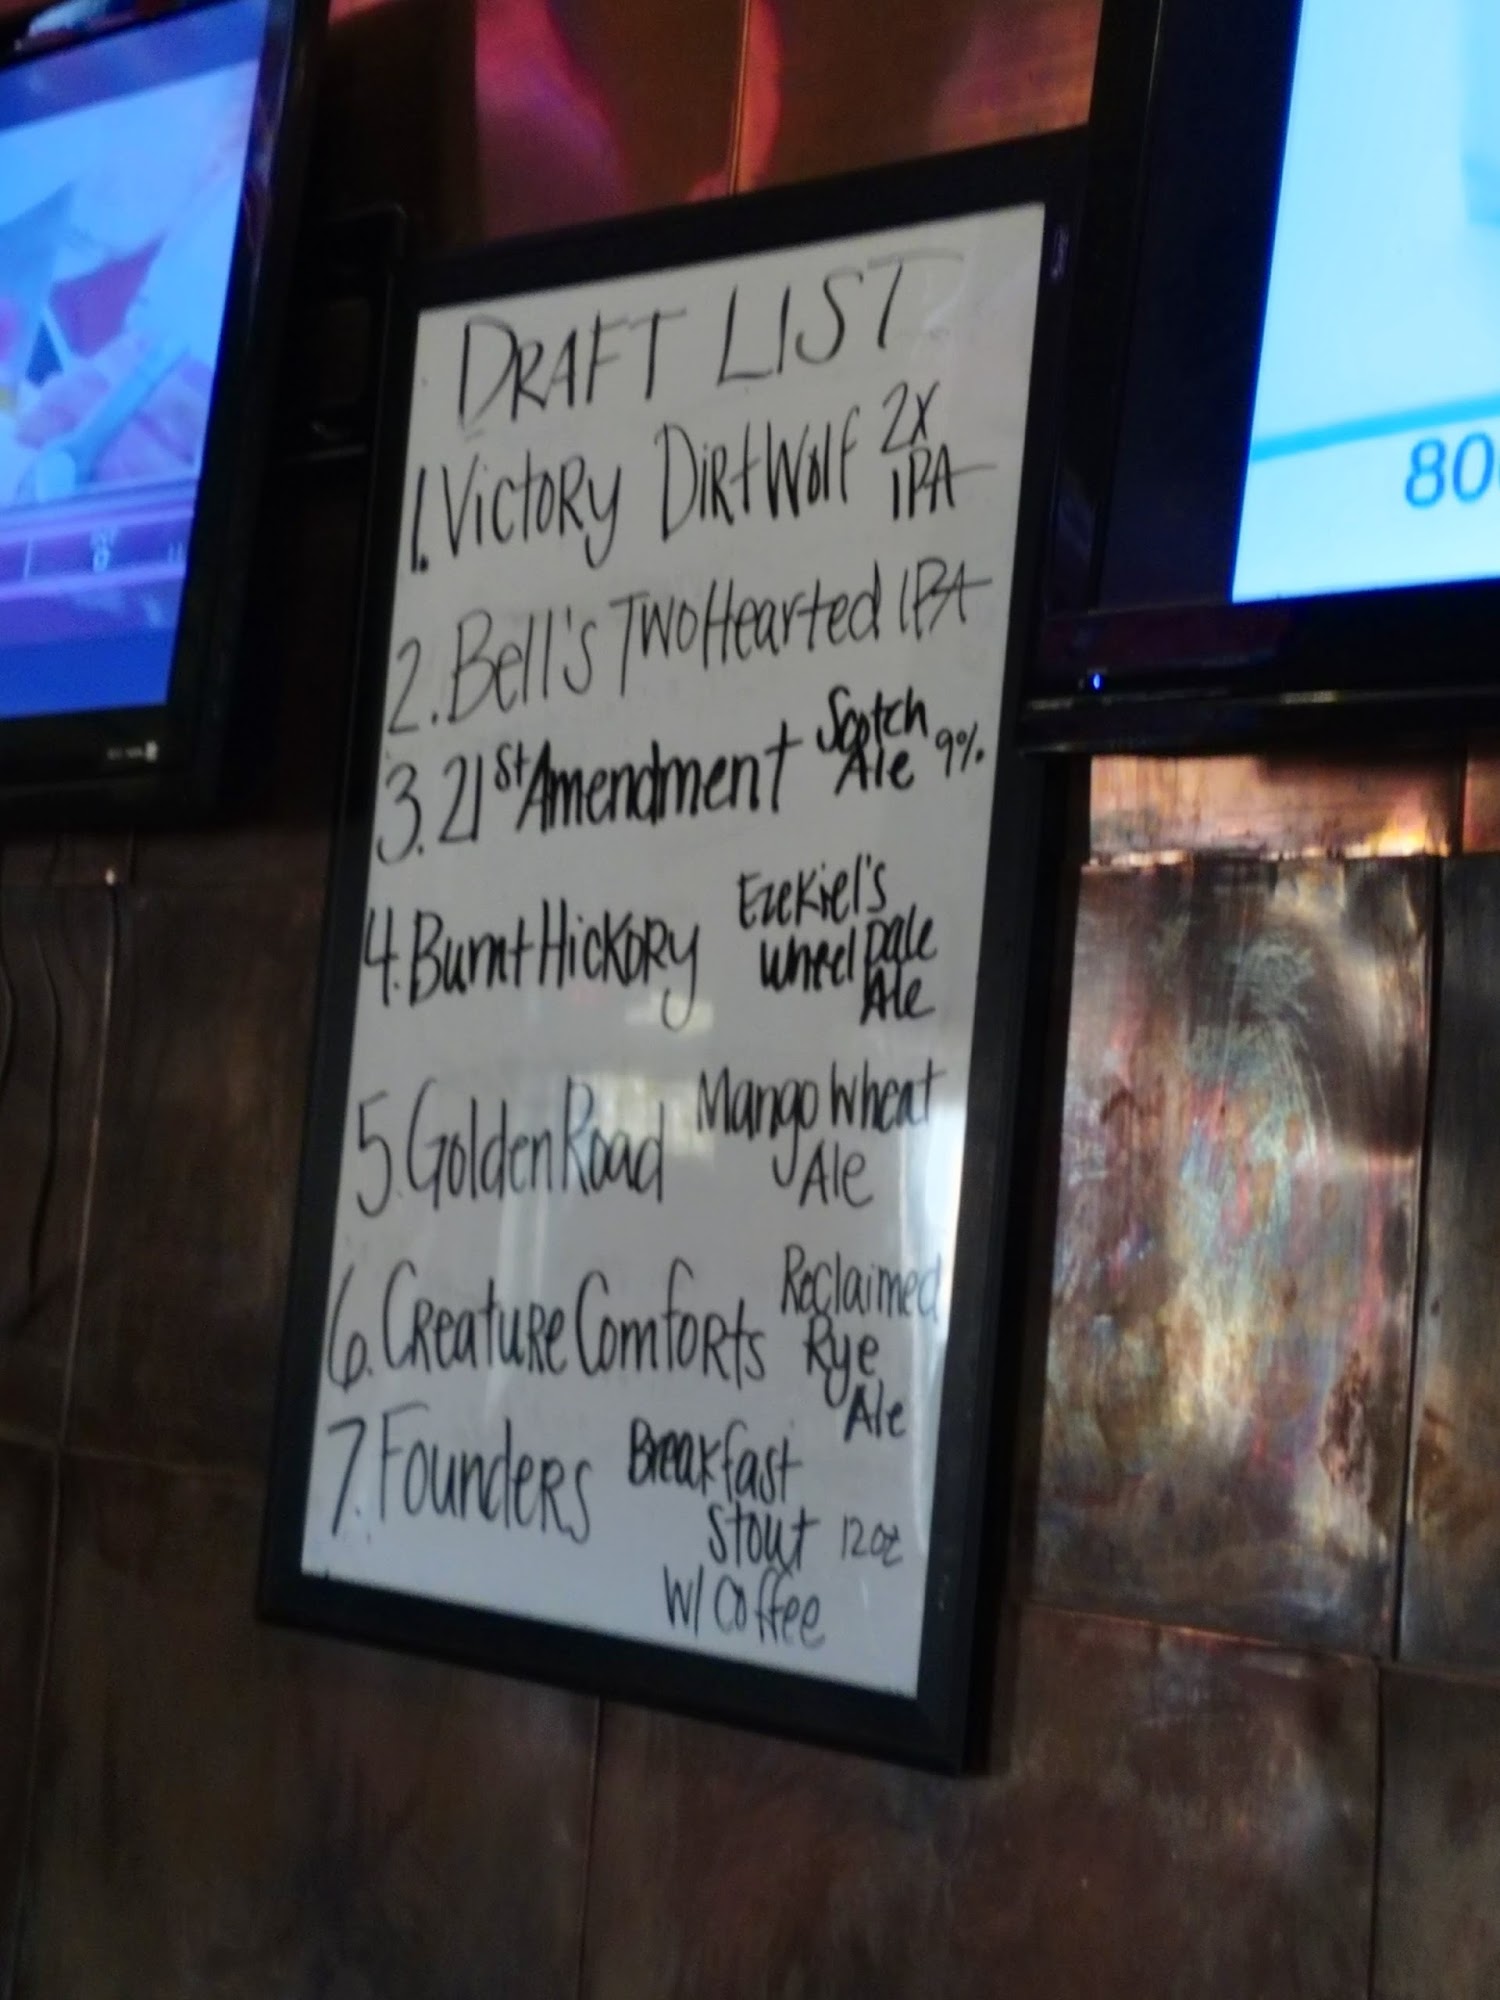 DRAFT LIST
1. Victory Dirt Wolf 2x IPA
2. Bell's Two Hearted IPA
3. 21st Amendment Scotch Ale 9%
4. Burnt Hickory Ezekiel's Wheel Pale Ale
5. Golden Road Mango Wheat Ale
6. Creature Comforts Reclaimed Rye Ale
7. Founders Breakfast Stout 12oz
W/ Coffee
80